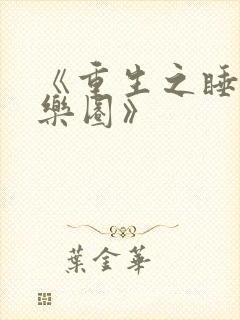 《重生之睡
樂園》
葉金華